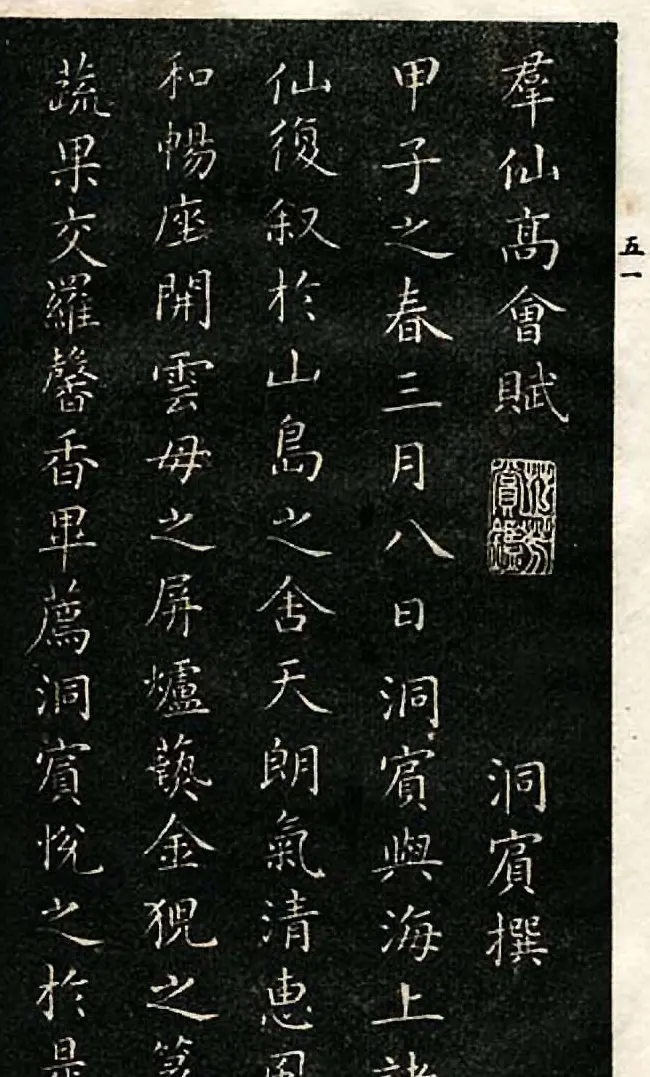 羣仙高會賦 洞賓撰
甲子之春三月八日洞賓與海上諸
仙復叙於山島之舍天朗氣清惠風
和暢座開雲母之屏爐藝金猊之篆
蔬果交羅馨香畢薦洞賓悅之於是
五一